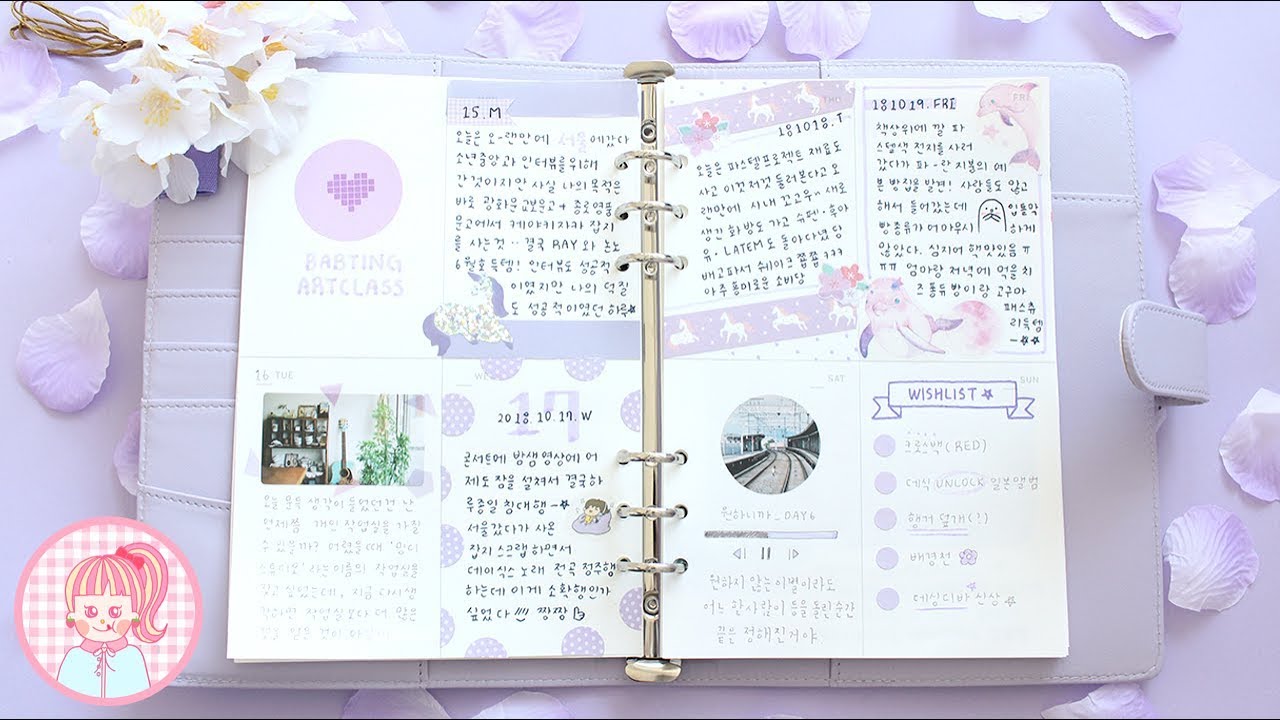 BABTING
ARTCLASS
15.M
오늘은 오-랜만에 서울에갔다
소년중앙과 인터뷰를위해
간것이지만 사실 나의 목적은
바로 광화문교보문고+종로영풍
문고에서 케야키자카 잡지
를 사는것‥결국 RAY와 논노
6월호득템! 인터뷰도 성공적
이었지만 나의 덕질
도 성공적이였던 하루
16 TUE
오늘 문득 생각이 들었던건 난
언제쯤 개인 작업실을 가질
수 있을까? 어렸을때
이름의 작업실을
갖고 싶었는데, 지금 다시생
각하면 작업실보다 더 많은
WE
17
2018.10.17.W
콘서트에 밤샘영상에 어
제도 잠을 설쳐서 결국하
루종일 침대행
서울갔다가 사온
잡지 스크랩 하면서
데이식스 노래 전곡 정주행
하는데 이게 소확행인가
싶었다 !!! 짱짱
THU
181018.T
오늘은 파스텔프로젝트 재료도
사고 이것저것 둘러본다고 오
랜만에 시내 꼬고우~ 새로
생긴 화방도 가고 슈펜·후아
유·LATEM도 돌아다녔당
배고파서 쉐이크 쫍쫍 ㅋㅋㅋ
아주 흥미로운 소비당
FRI
181019.FRI
책상위에 깔 파
스텔색 전지를 사러
갔다가 파-란 지붕의 예
쁜 빵집을 발견! 사람들도 많고
해서 들어갔는데 입틀막
빵종류가 어마무시 하게
많았다. 심지어 핵맛있음 ㅠ
ㅠㅠ 엄마랑 저녁에 먹을 치
즈통듀빵이랑 고구마
패스츄
리득템
SAT
원하니까_DAY6
원하지 않는 이별이라도
어느 한사람이 등을돌린순간
끝은 정해진거야.
SUN
WISHLIST
크로스백(RED)
데식 UNLOCK 일본앨범
행거 덮개(!)
배경천
데싱디바 신상